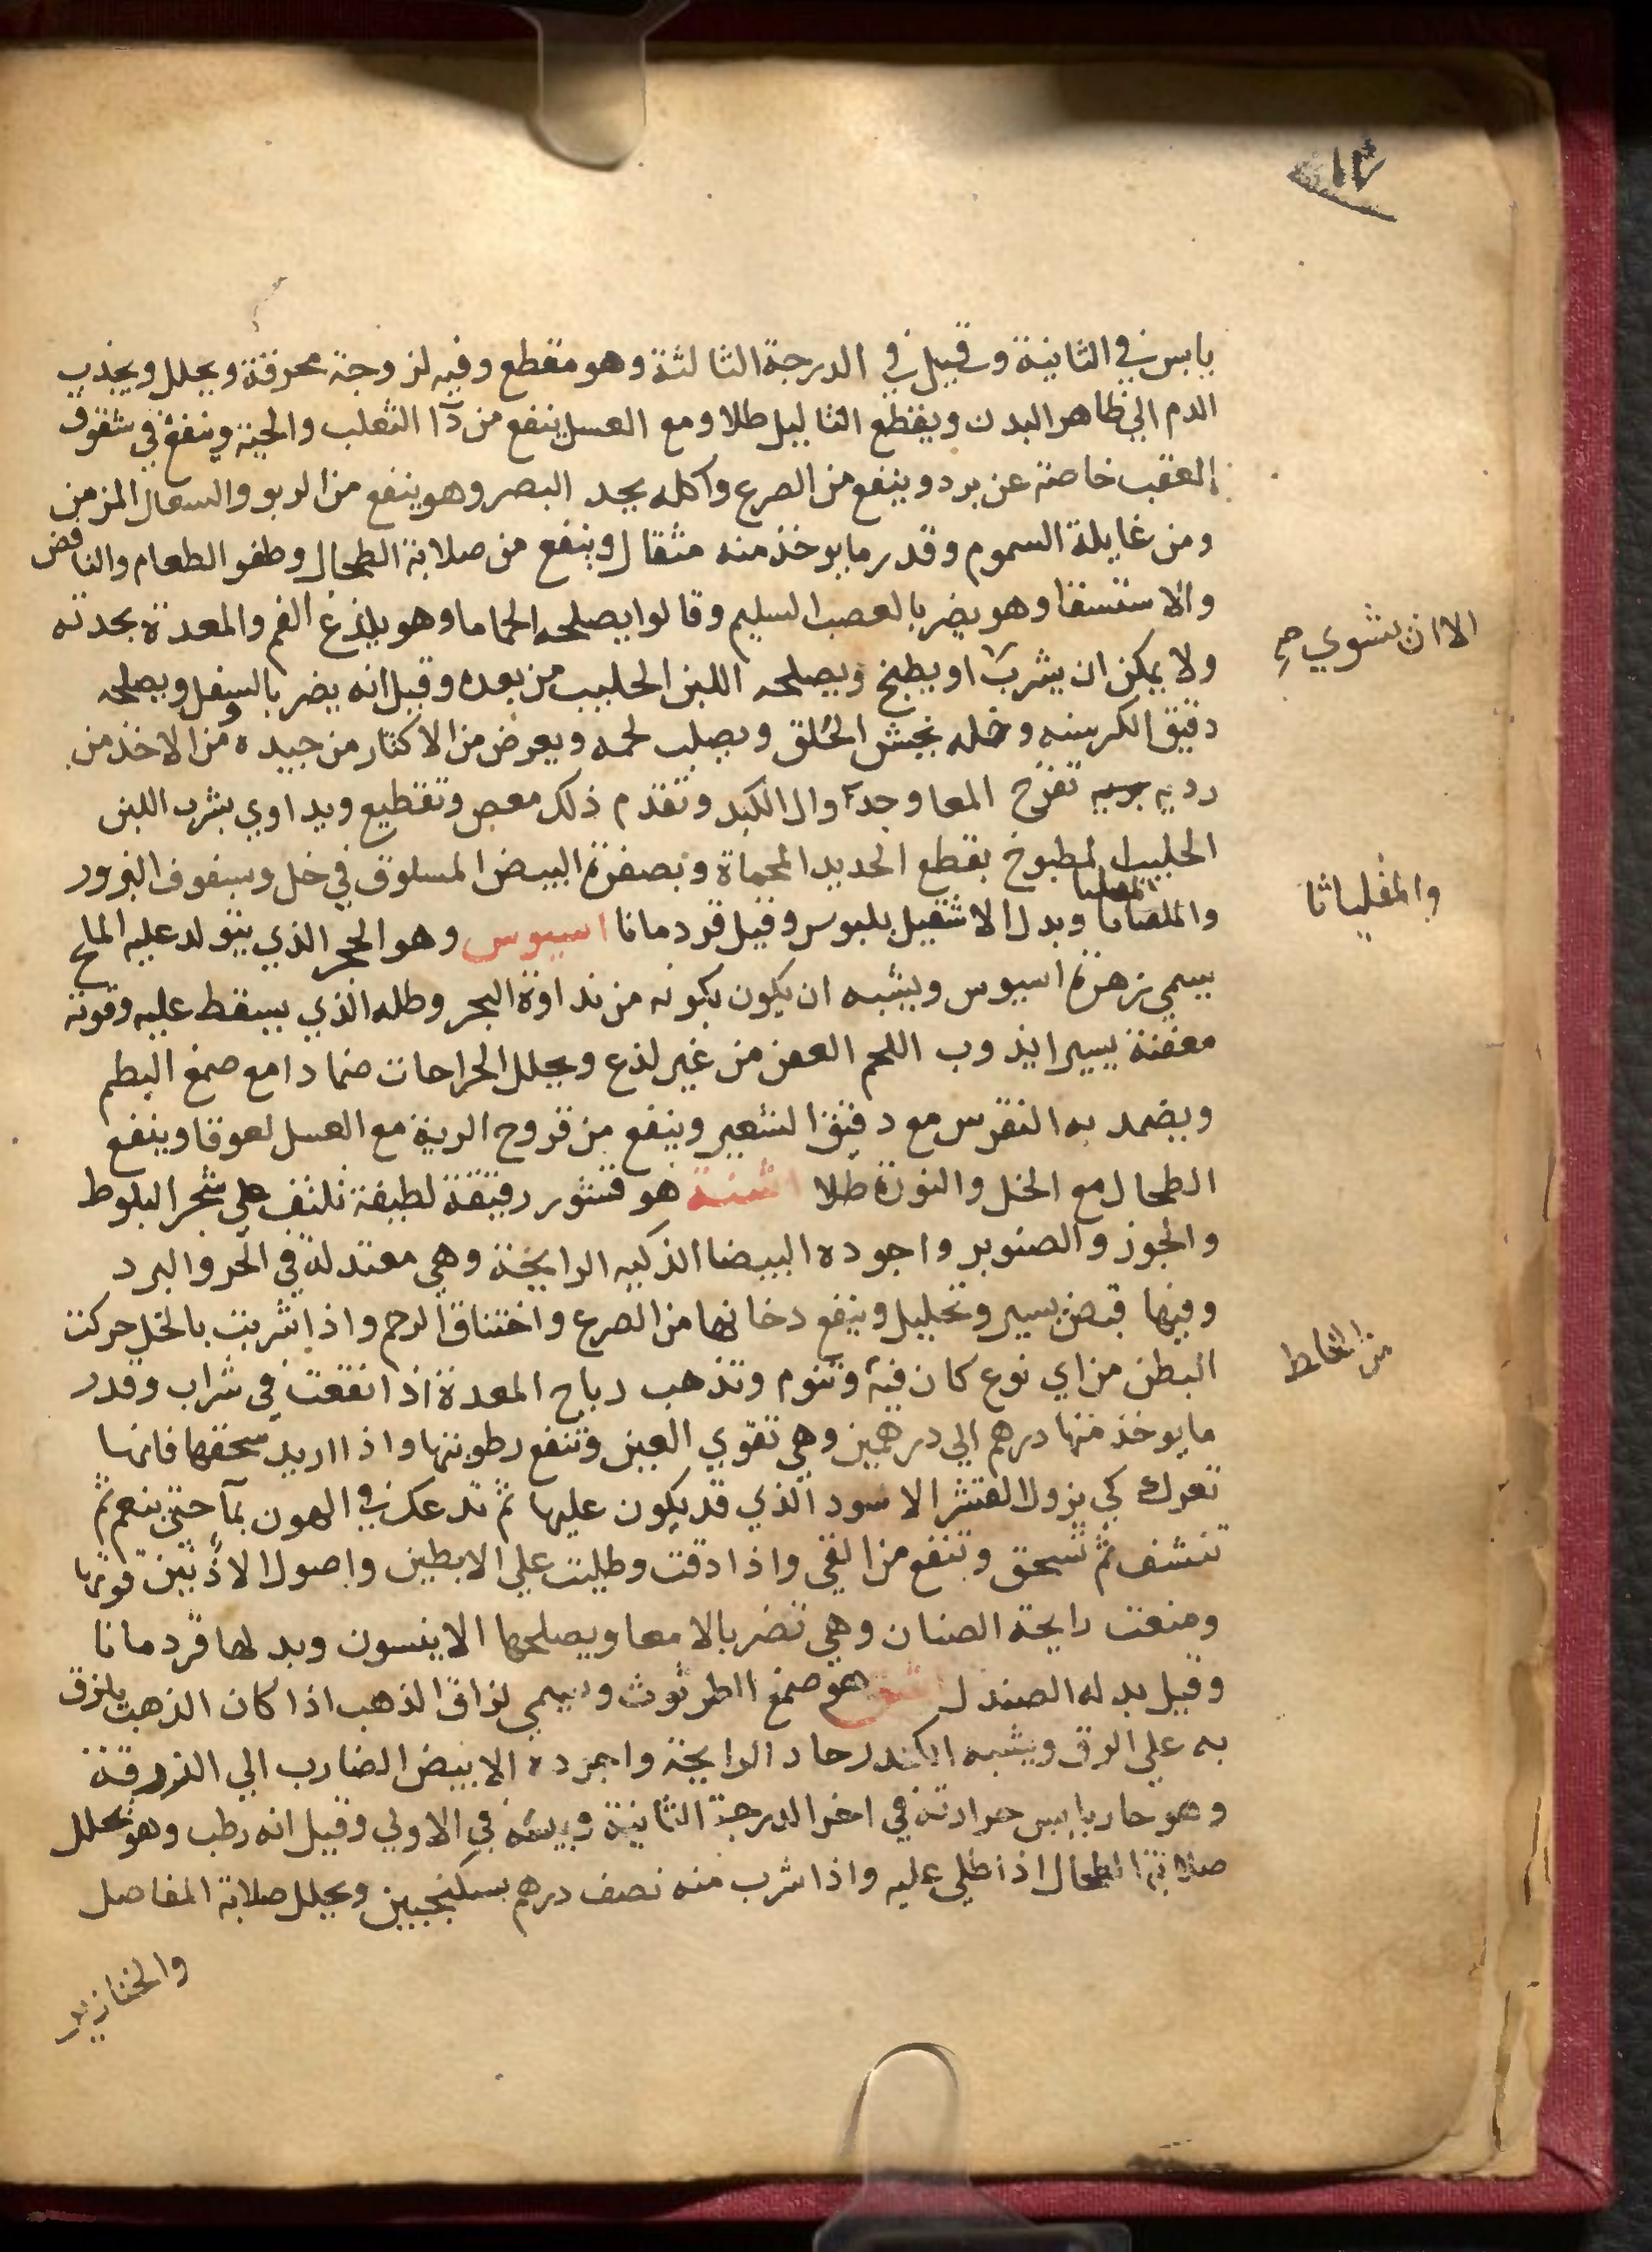 ١٢
يابس في الثانية وقيل في الدرجة الثالثة وهو مقطع وفيه لزوجة محرقة ويحلل ويجذب
الدم الي ظاهر البدن ويقطع الثاليل طلا ومع العسل ينفع من دآ الثعلب والحية وينفع في شقوق
العقب خاصة عن برد وينفع من الصرع واكله يحد البصر وهو ينفع من الربو والسعال المزمن
ومن غايلة السموم وقدر ما يوخذ منه مثقال وينفع من صلابة الطحال وطفو الطعام والنافض
والاستسقا وهو يضر بالعصب السليم وقالوا يصلحه الحماما وهو يلذغ الفم والمعدة بحدته
ولا يمكن ان يشرب او يطبخ ويصلحه اللبن الحليب من بعده وقيل انه يضر بالسفل ويصلحه
الا ان يشوي صح
دقيق الكرسنه وخله يخشن الحلق ويصلب لحمه ويعرض من الاكثار من جيده ومن الاخذ من
رديه تقرح المعا وجدآول الكبد وتقدم ذلك مغص وتقطيع ويداوي بشرب اللبن
الحليب المطبوخ بقطع الحديد المحماة وبصفرة البيض المسلوق في خل وسفوف البزور
والمقلياثا
وبدل الاشقيل بلبوس وقيل قردمانا اسيوس وهو الحجر الذي يتولد عليه الملح
يسمي زهرة اسيوس ويشبه ان يكون يكونه من نداوة البحر وطله الذي يسقط عليه وقوته
معفنة يسيرا يذوب اللحم العفن من غير لذع ويحلل الجراحات ضمادا مع صمغ البطم
ويضمد به النقرس مع دقيق الشعير وينفع من قروح الرية مع العسل لعوقا وينفع
الطحال مع الخل والنورة طلا اشنة هو قشور رقيقة لطيفة تلتف علي شجر البلوط
والجوز والصنوبر واجوده البيضا الذكيه الرايحة وهي معتدلة في الحر والبرد
وفيها قبض يسير وتحليل وينفع دخانها من الصرع واختناق الرحم واذا شربت بالخل حركت
البطن من اي نوع كان فيه وتنوم وتذهب رياح المعدة اذا انقعت في شراب وقدر
ما يوخذ منها درهم الي درهمين وهي تقوي العين وتنفع رطوبتها واذا اريد سحقها فانها
تعرك كي يزول القشر الاسود الذي قد يكون عليها ثم تدعك في الهون بمآ حتي ينعم ثم
تنشف ثم تسحق وتنفع من القي واذا دقت وطليت علي الابطين واصول الاذنين قوتها
ومنعت رايحة الصنان وهي تضر بالامعا ويصلحها الانيسون وبدلها قردمانا
وقيل بدله الصندل اشق هو صمغ الطرثوث ويسمي لزاق الذهب اذا كان الذهب يلزق
به علي الرق ويشبه الكندر حاد الرايحة واجوده الابيض الضارب الي الزرقة
وهو حار يابس حرارته في اخر الدرجة الثانية ويبسه في الاولي وقيل انه رطب وهو يحلل
صلابة الطحال اذا طلي عليه واذا شرب منه نصف درهم بسكنجبين ويحلل صلابة المفاصل
والخنازير